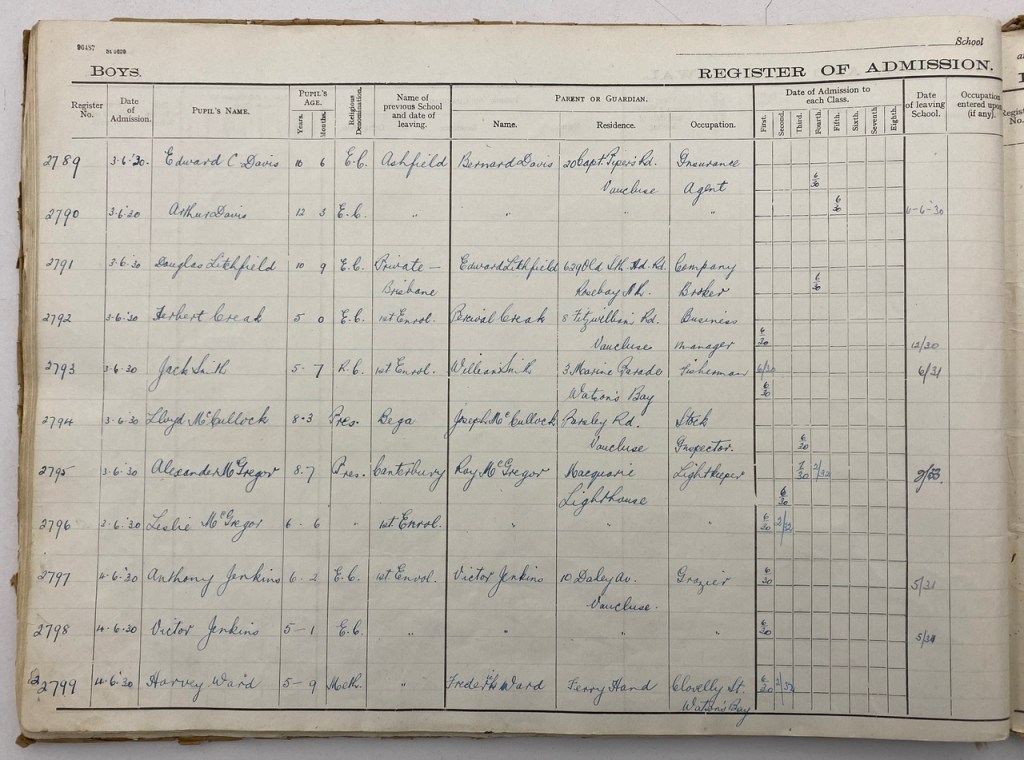 School
BOYS. REGISTER OF ADMISSION.
Register No. Date of Admission. PUPIL'S NAME. PUPIL'S AGE. Years. Months. Religious Denomination. Name of previous School and date of leaving. PARENT OR GUARDIAN. Name. Residence. Occupation. Date of Admission to each Class. First. Second. Third. Fourth. Fifth. Sixth. Seventh. Eighth. Date of leaving School. Occupation entered upon (if any).
2789 3.6.'30 Edward C. Davis 10 6 E.C. Ashfield Bernard Davis 20 Capt. Piper's Rd. Insurance
Vaucluse Agent 6/30
2790 3.6.'30 Arthur Davis 12 3 E.C. " " " " 6/30 11-6-'30
2791 3.6.'30 Douglas Litchfield 10 9 E.C. Private – Edward Litchfield 629 Old Sth. Hd. Rd. Company
Brisbane Rosebay Nth. Broker 6/30
2792 3.6.'30 Herbert Creak 5 0 E.C. 1st Enrol. Percival Creak 8 Fitzwilliam Rd. Business
Vaucluse Manager 6/30 12/30
2793 3.6.'30 Jack Smith 5 - 7 R.C. 1st Enrol. William Smith 3 Marine Parade Fisherman 6/30 6/31
Watson's Bay 6/30
2794 3.6.'30 Lloyd McCullock 8 . 3 Pres. Bega Joseph McCullock Parsley Rd. Stock
Vaucluse Inspector. 6/30
2795 3.6.'30 Alexander McGregor 8 . 7 Pres. Canterbury Roy McGregor Macquarie Lightkeeper 7/30 2/32
Lighthouse 6/30
2796 3.6.'30 Leslie McGregor 6 - 6 " 1st Enrol. " " " 6/30 2/32
2797 4.6.'30 Anthony Jenkins 6 - 2 E.C. 1st Enrol. Victor Jenkins 10 Daley Av. Grazier 6/30 5/31
Vaucluse.
2798 4.6.30 Victor Jenkins 5 – 1 E.C. " " " " 6/30 5/31
2799 4.6.'30 Harvey Ward 5 – 9 Meth. " Fredek Ward Ferry Hand Clovelly St. 6/30 2/32
Watson's Bay